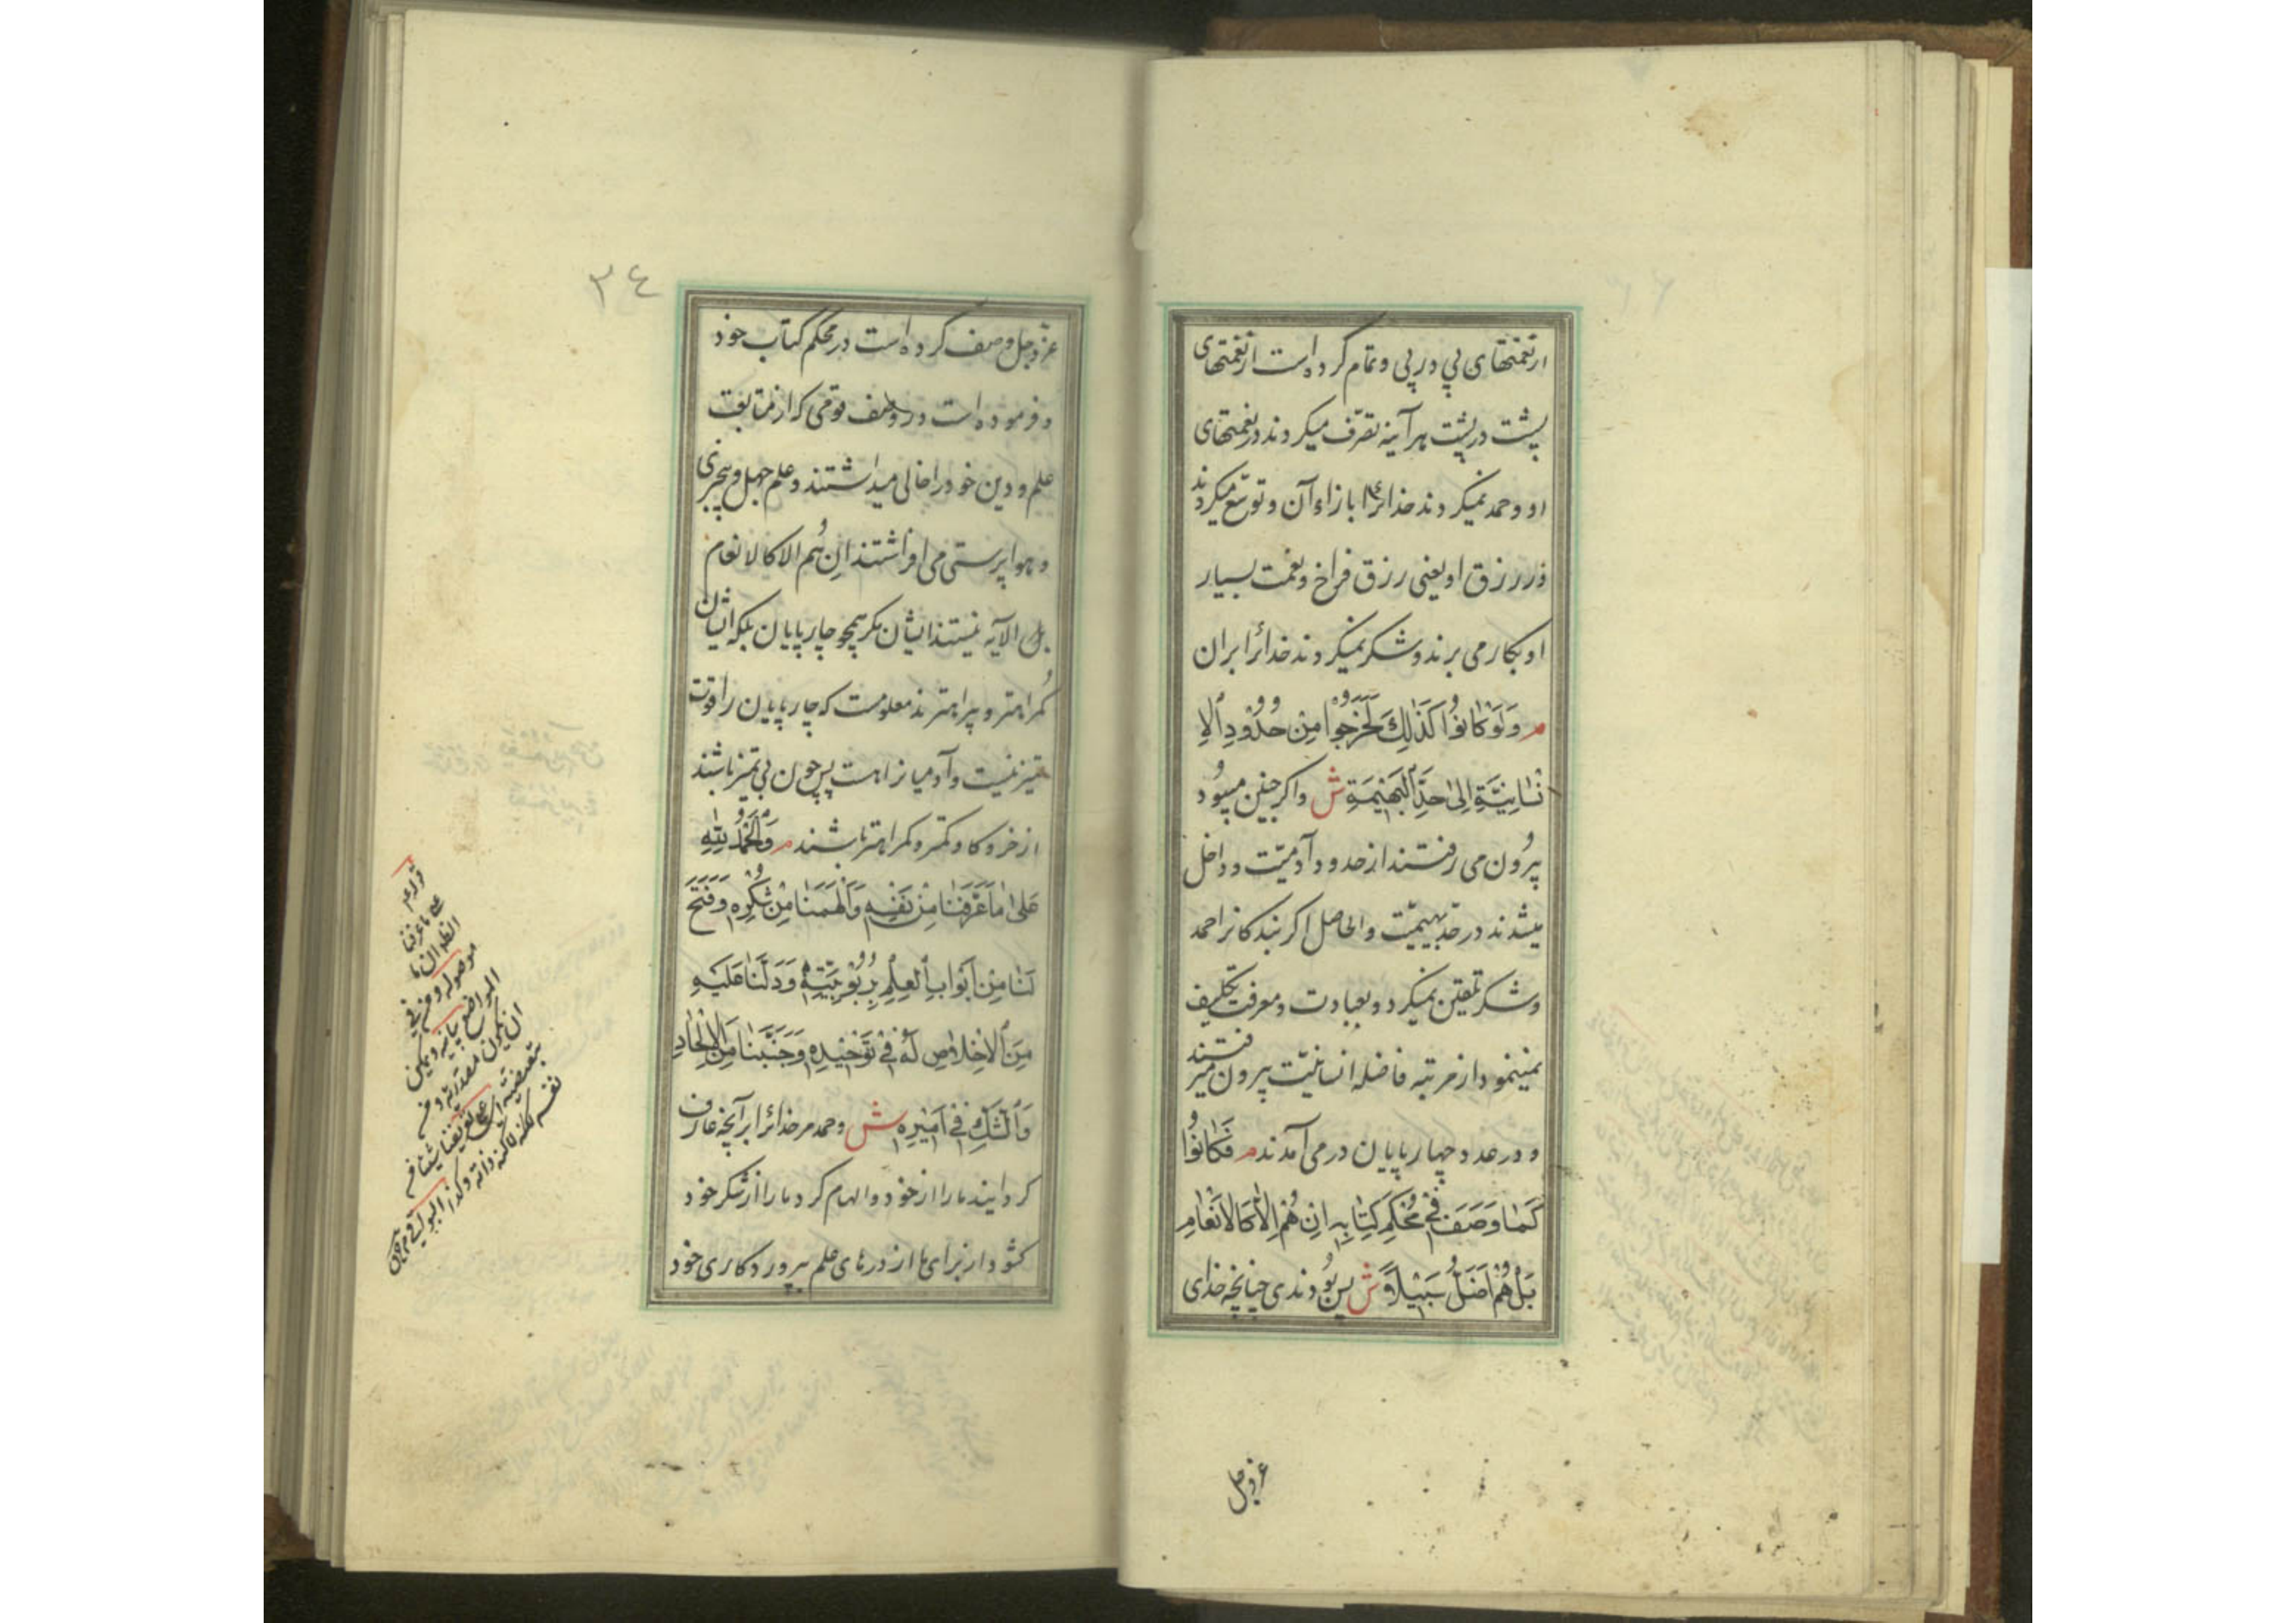 از نعمتهای پی در پی و تمام کرده است از نعمتهای
پشت در پشت هر آینه تصرّف میکردند در نعمتهای
او و حمد نمیکردند خدائرا بازاء آن و توسّع میکردند
در رزق او یعنی رزق فراخ و نعمت بسیار
او بکار می بردند و شکر نمیکردند خدائرا بر آن
م وَلَوْ كَانُوا كَذٰلِكَ لَخَرَجُوا مِنْ حُدُودِ الْاِ
نْسَانِيَّةِ اِلىٰ حَدِّ الْبَهيمَةِ ش و اگر چنین میبُود
بیرُون می رفتند از حدود آدمیّت و داخل
میشدند در حدّ بهیمیّت و الحاصل اگر بندکانرا حمد
و شکر تلقین نمیکرد و بعبادت و معرفت تکلیف
نمینمود از مرتبه فاضله انسانیّت بیرون میرفتند
و در عدد چهارپایان در می آمدند م فَكَانُوا
كَمَا وَصَفَ فى مُحْكَمِ كِتَابِهِ اِنْ هُمْ اِلَّا كَالْاَنْعَامِ
بَلْ هُمْ اَضَلُّ سَبيلًا ش پس بُودندی چنانچه خدای
عز و جل
٣٤
عزّ و جل وصف کرده است در محکم کتاب خود
و فرموده است در وصف قومی که از متابعت
علم و دین خود را خالی میداشتند و علم جهل و بیخبری
و هوا پرستی می افراشتند اِن هُم الا کالانعام
بل الآیه نیستند ایشان مکر همچو چارپایان بلکه ایشان
کُمراهتر و بیراهترند معلومست که چارپایان را قوت
تمیز نیست و آدمیانرا هست پس چون بی تمیز باشند
از خر و کاو کمتر و کمراهتر باشند م وَالْحَمْدُ لِلّٰهِ
عَلىٰ مَا عَرَّفَنَا مِنْ نَفْسِهِ وَاَلْهَمَنَا مِنْ شُكْرِهِ وَفَتَحَ
لَنَا مِنْ اَبْوَابِ الْعِلْمِ بِرُبُوبِيَّتِهِ وَدَلَّنَا عَلَيْهِ
مِنَ الْاِخْلَاصِ لَهُ فى تَوْحيدِهِ وَجَنَّبَنَا مِنَ الْاِلْحَادِ
وَالشَّكِّ فى اَمْرِهِ ش و حمد مر خدائرا بر آنچه عارف
کردانیند ما را از خود و الهام کرد ما را از شکر خود
کشود از برای ما از درهای علم بپروردکاری خود
قوله
على ما عرفنا
الظ ان ما
موصولة و من فى
المواضع بيانية و يمكن
ان يكون مصدرية و من
تبعيضية اى على تعريفنا شيئا من